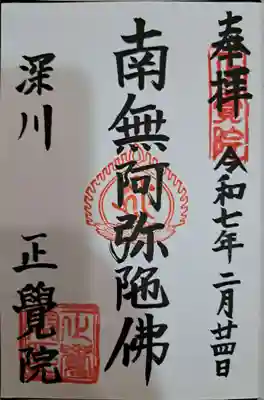 奉拝 令和七年二月廿四日
南無阿弥陀佛
深川 正覺院